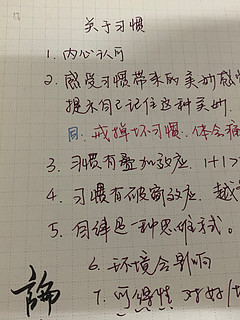 关于习惯
1. 内心认可
2. 感受习惯带来的美妙感
提示自己记住这种美妙.
同. 戒掉坏习惯. 体会痛
3. 习惯有叠加效应. 1+1>
4. 习惯有破窗效应. 越
5. 自律是一种思维方式。
6. 环境会影响
7. 可惯性 对好/
論